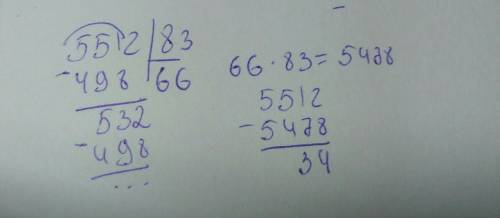 5512 | 83
-498 | 66
532
-498
...
66 · 83 = 5478
5512
-5478
34